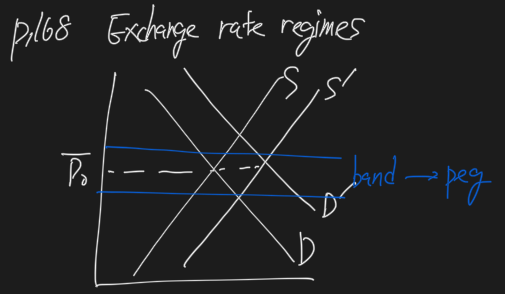 p.168 Exchange rate regimes
S S'
P̅₀
band → peg
D'
D